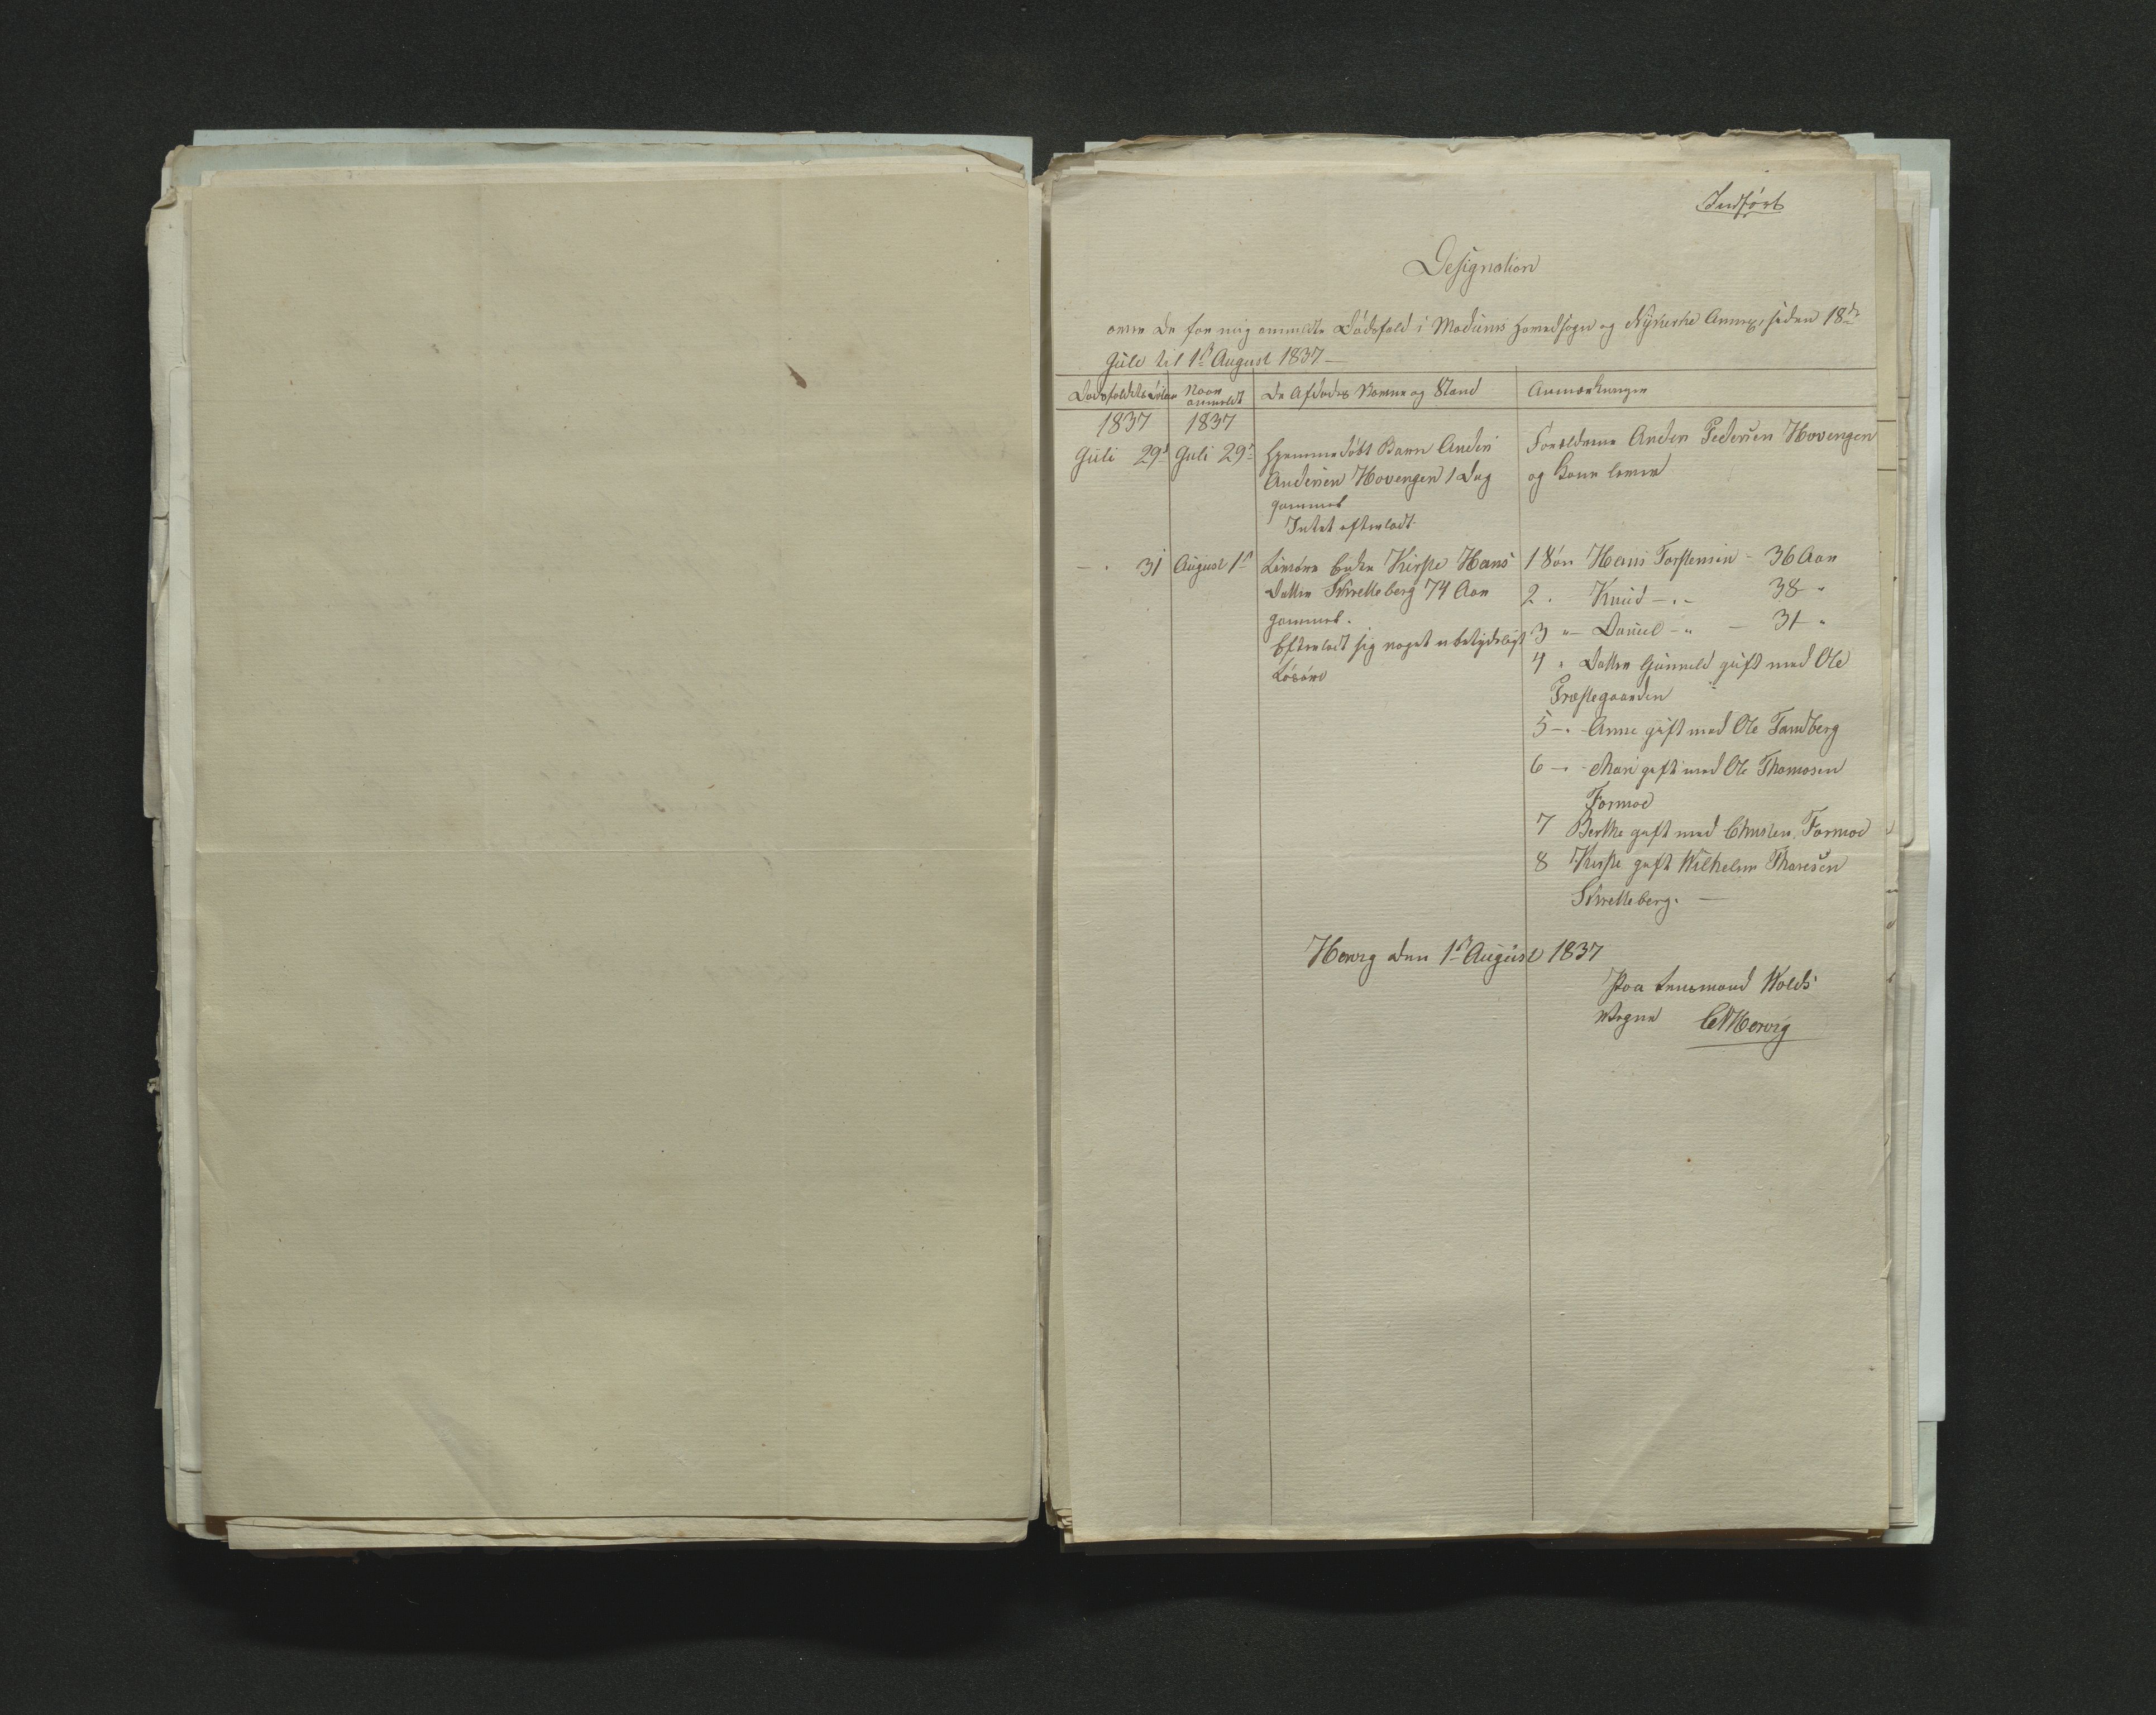 Indført
Designation
over de for mig anmeldte Dødsfald i Modums Hovedsogn og Nykirke Annex, siden 18de
Juli til 1st August 1837
Dødsfaldets Datum
Naar anmeldt
De Afdødes Navne og Stand
Anmærkninger
1837
1837
Juli 29d
Juli 29d
Hjemmedøbt Barn Anders
Andersen Hovengen 1 Dag
gammel
Intet efterladt
Forældrene Anders Pedersen Hovengen
og Kone lever
— " 31
August 1st
Enken Kirste Hans
Datter Skretteberg 74 Aar
gammel.
Efterladt sig noget ubetydeligt
Løsøre
1 Søn Hans Torstensen - 36 Aar
2 " Knud — " — 38 "
3 "— Daniel — " — 31 "
4 " Datter Gunnild gift med Ole
Præstegaarden
5 — " Anne gift med Ole Tandberg
6 — " Mari gift med Ole Thomasen
Formoe
7 Berthe gift med Christen Formoe
8 Kirste gift Wilhelm Thoresen
Skretteberg. —
Hervig den 1st August 1837
Paa Lensmand Wolds
Vegne CHervig